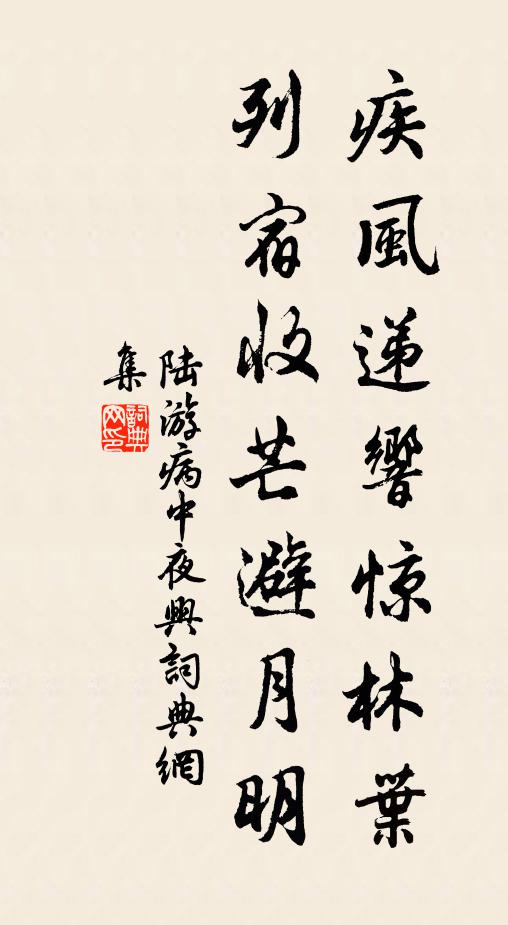 疾風遞響惊林葉
列宿收芒避月明
陸游病中夜興詞典網
集
詞典网印